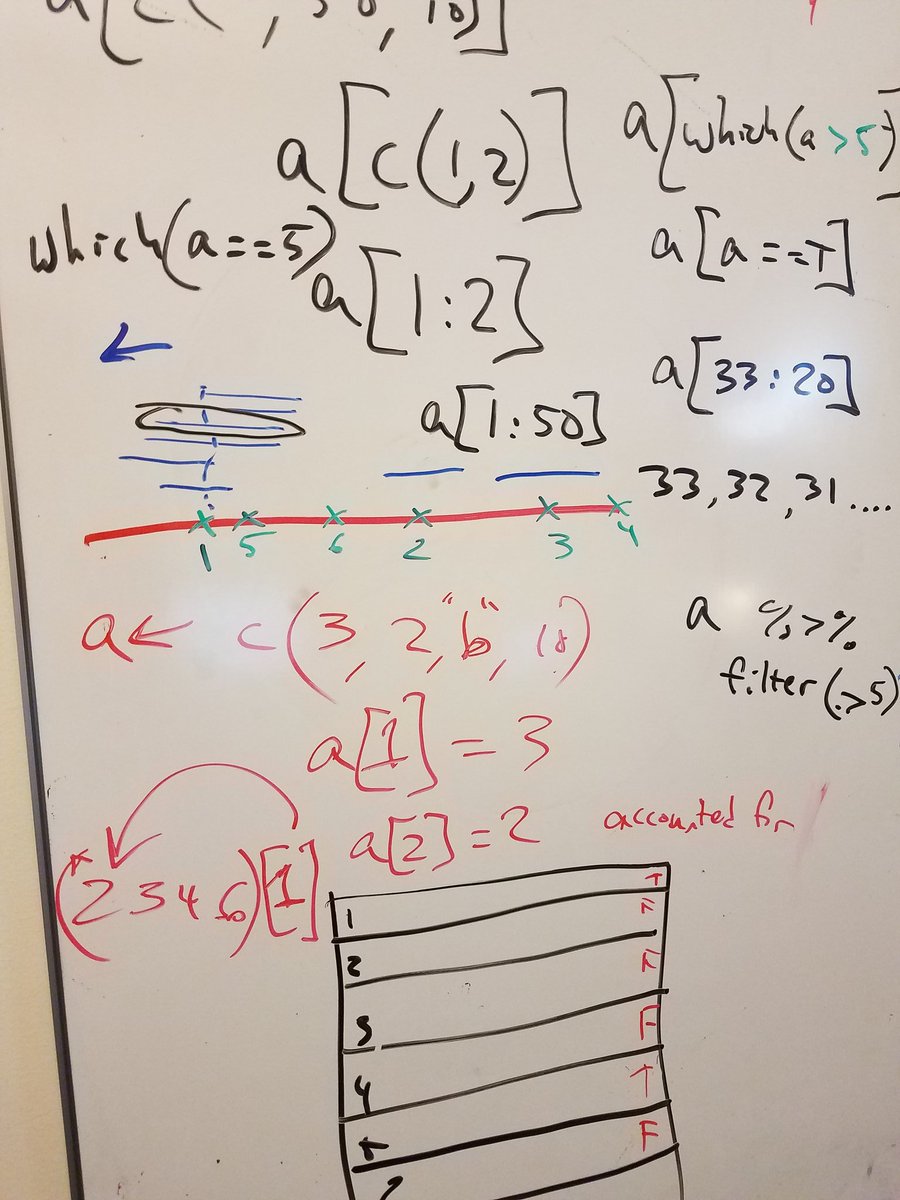 a[c( , 50, 10)]
a[c(1,2)]
a[which(a >5)
which(a==5)
a[1:2]
a[a==T]
a[33:20]
a[1:50]
33, 32, 31 ....
1 5 6 2 3 4
a ← c(3, 2, "b", 10)
a %>%
filter(.>5)
a[1] = 3
a[2] = 2
accounted for
(2 3 4 6)[1]
T
1 F
2 F
3 F
4 T
5 F